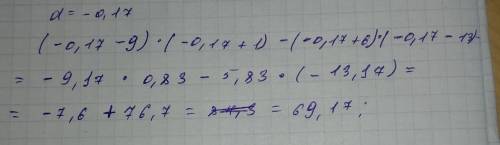 a = -0,17
(-0,17-9)·(-0,17+1)-(-0,17+6)·(-0,17-13)
= -9,17 · 0,83 - 5,83 · (-13,17) =
= -7,6 + 76,7 = = 69,17;